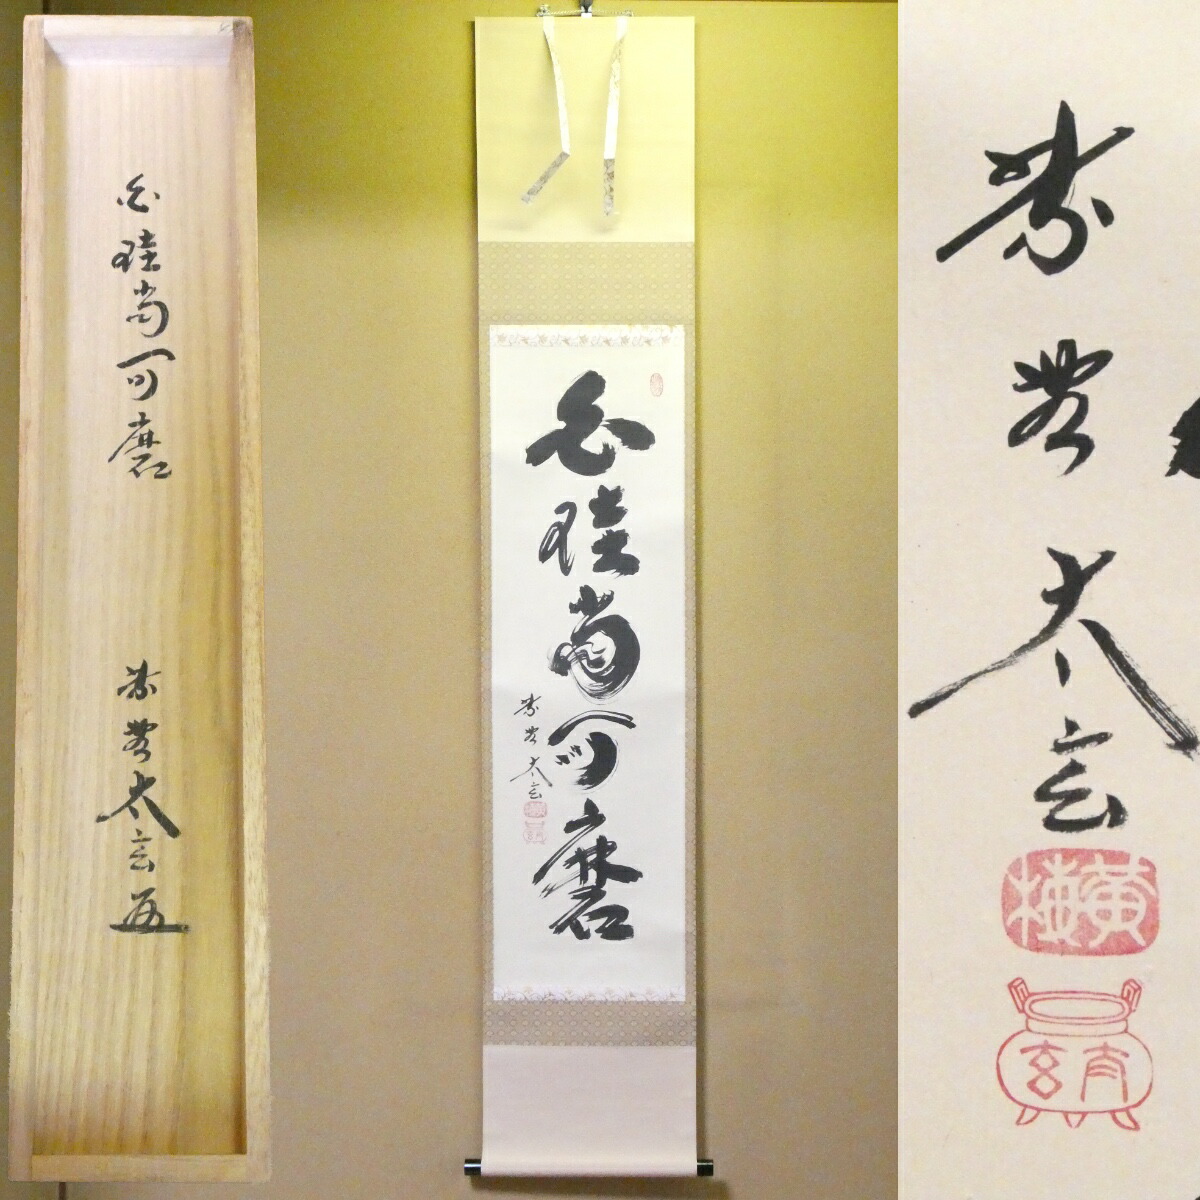 白珪尚可磨
紫野太玄
白珪尚可磨
紫野太玄
紫野
太玄
黄梅
太玄